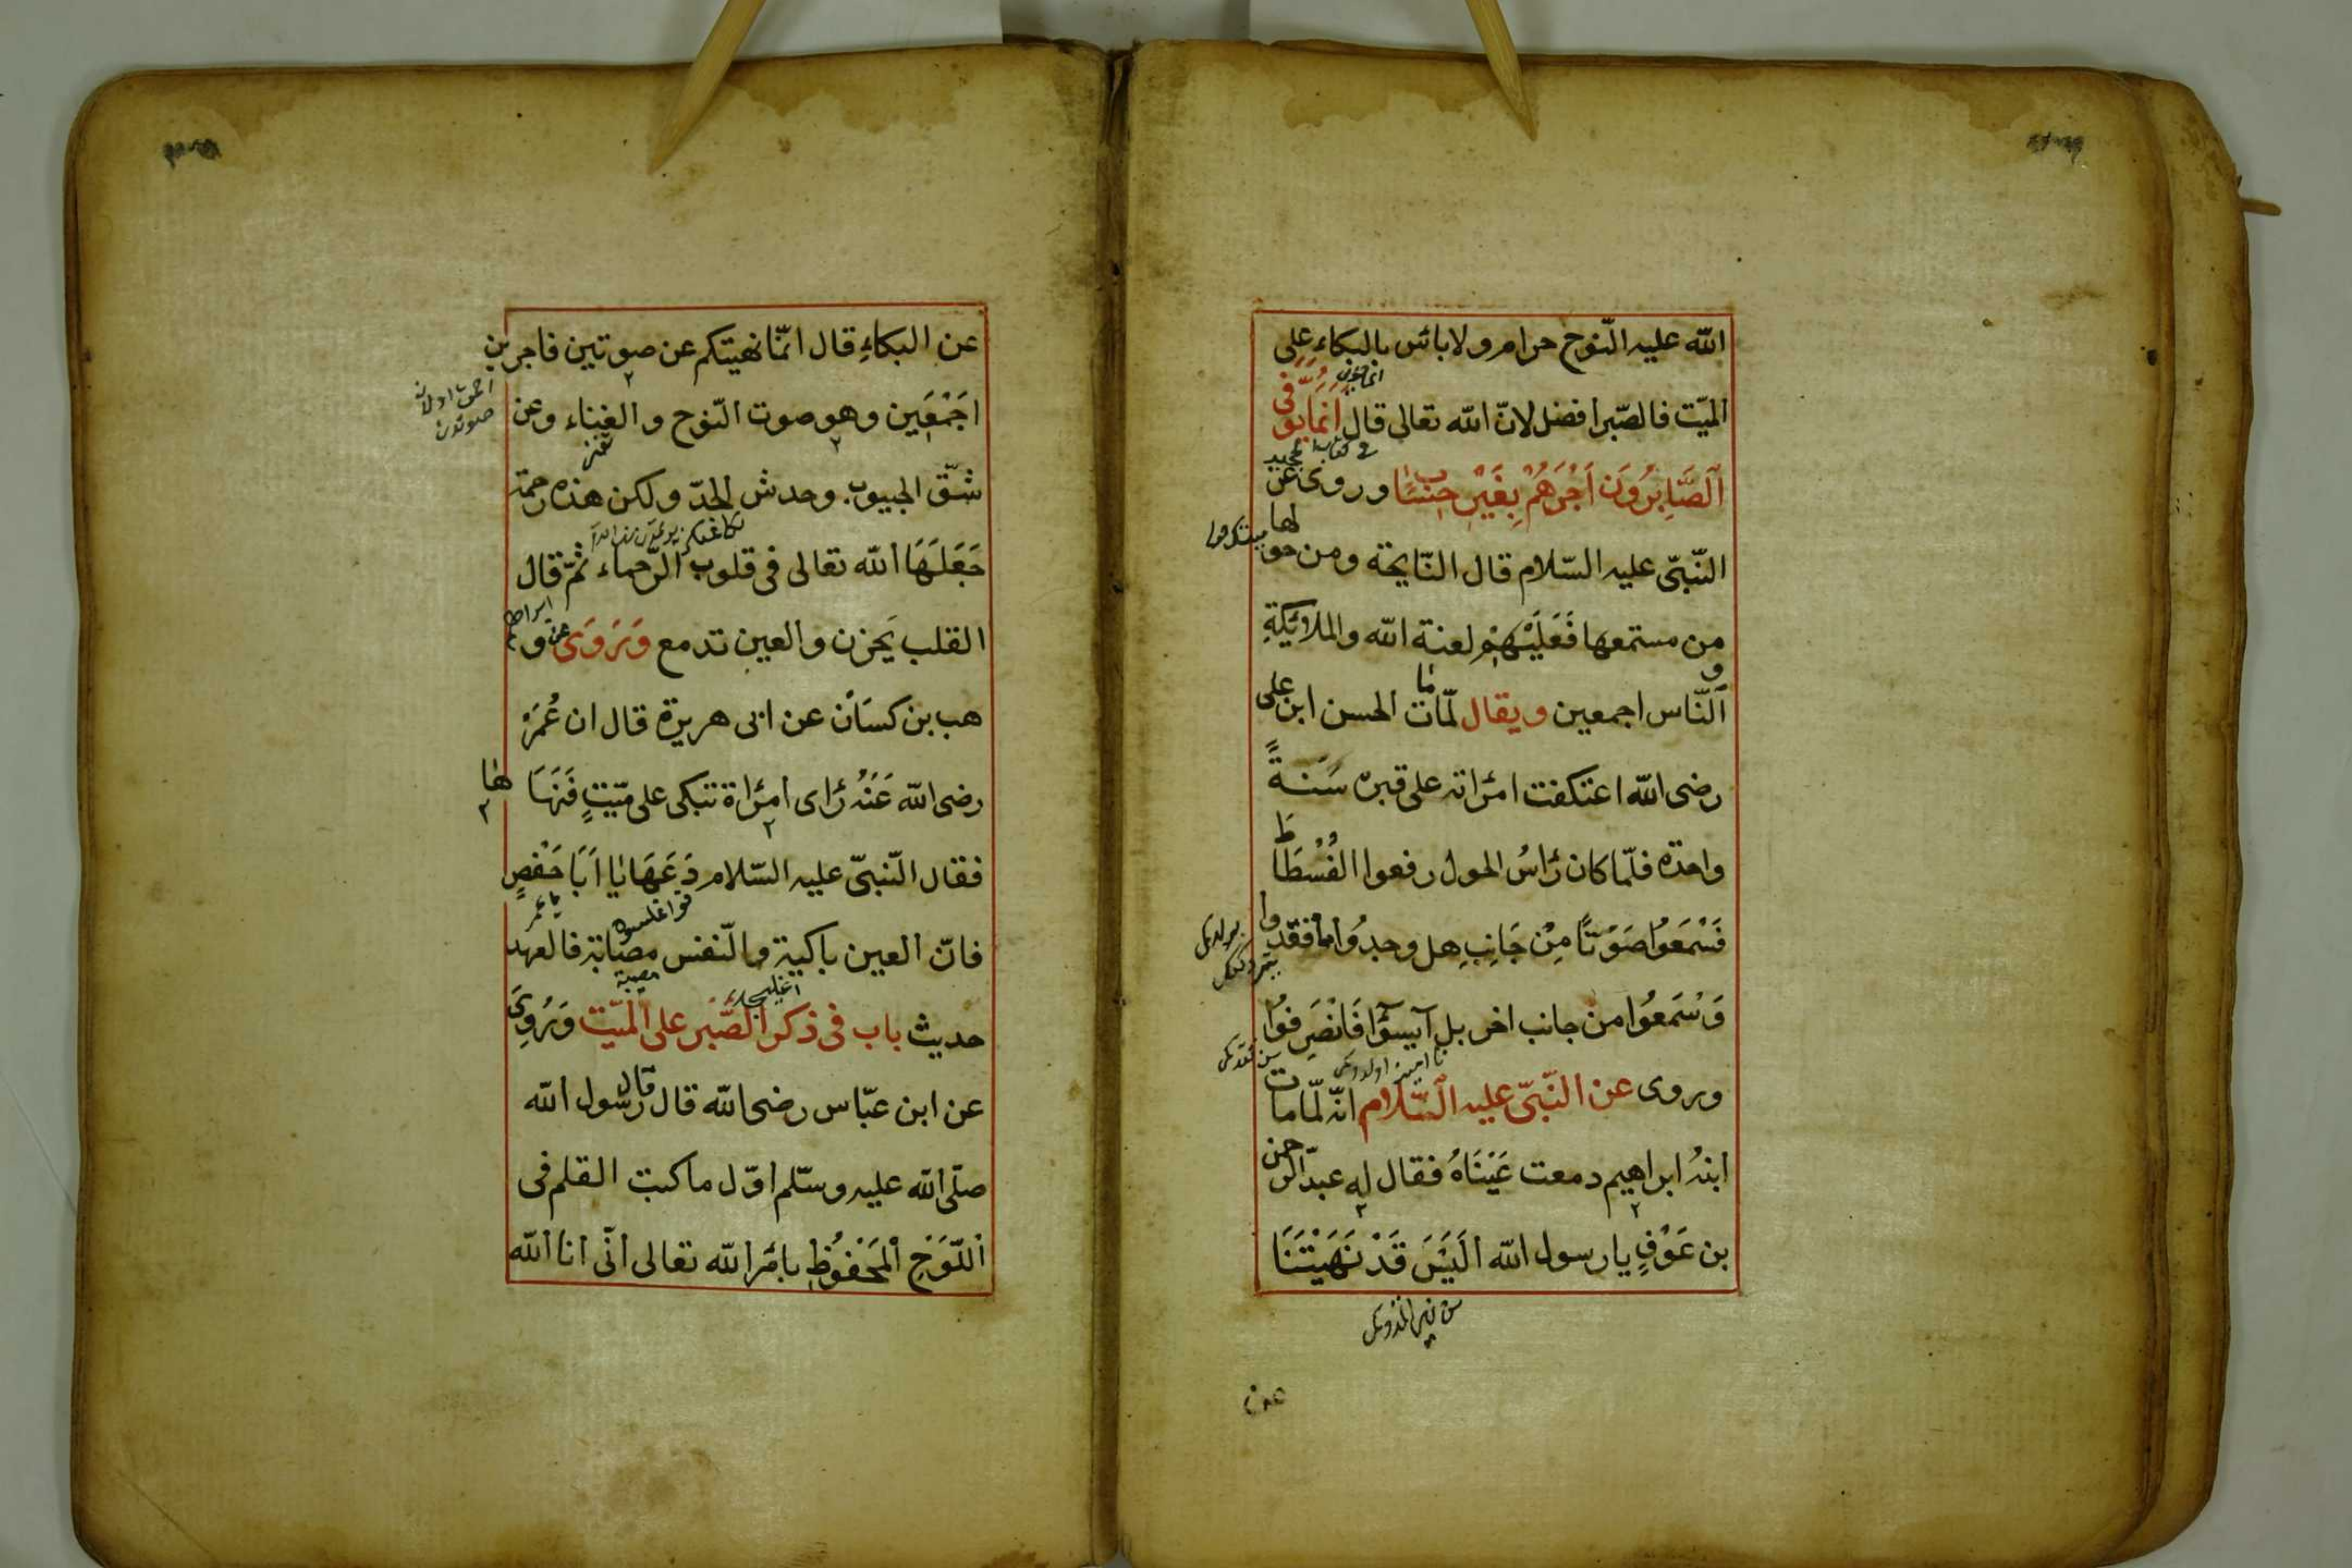 الله عليه النّوح حرام ولا بائس بالبكاءِ على
الميّت فالصّبر افضل لانّ الله تعالى قال اِنَّمَا يُوَفَّى
الصَّابِرُونَ اَجْرَهُمْ بِغَيْرِ حِسَابٍ وروى عن
النّبىّ عليه السّلام قال النّايحة ومن حولها
من مستمعها فَعَلَيْهِمْ لعنة الله والملائِكَةِ
و النّاس اجمعين ويقال لمّا مات الحسن ابن على
رضى الله اعتكفت امرُاته على قبره سَنَةً
واحدة فلمّا كان رُاسُ الحول رفعوا الفُسْطَاطَ
فَسَمَعُوا صَوْتًا مِنْ جَانِبِ هل وجدُوا ما فقدوا
وَسَمَعُوا من جانب اخر بل آيسؤا فَانْصَرِفوُا
وروى عن النّبىّ عليه السّلام انّه لمّا مات
ابنهُ ابراهيم دمعت عَيْنَاهُ فقال له عبد الرّحمن
بن عَوْفٍ يا رسول الله الَيْسَ قَدْ نَهَيْتَنَا
عن
عن البكاءِ قال انّما نهيتكم عن صوتين فاجرين
اجَمْعَين وهو صوت النّوح والغناء وعن
شقّ الجيوب وحدش الخدّ ولكن هذه رحمة
جَعَلَهَا الله تعالى فى قلوب الرّحماء ثمّ قال
القلب يَحزن والعين تدمع وَرَوَى عن و
هب بن كسَان عن ابى هريرة قال ان عُمَرَ
رضى الله عَنْهُ رُاى امرُاة تبكى على ميّتٍ فَنَهَاهَا
فقال النّبىّ عليه السّلام دَعَهَا يا اَبَا حَفْصٍ
فانّ العين باكية والنّفس مصابة فالعهد
حديث باب فى ذكر الصَّبر على الميّت وَرُوِىَ
عن ابن عبّاس رضى الله قال قال رسول الله
صلّى الله عليه وسلّم اوّل ما كتب القلم فى
اللّوَحِ المَحْفُوظِ بامرُ الله تعالى انّى انا الله